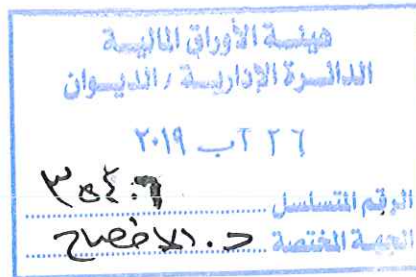 هيئـة الأوراق الماليـة
الدائـرة الإداريـة / الديـوان
٢٦ آب ٢٠١٩
الرقم المتسلسل ٣٥٤٠٦
الجهة المختصة د. الافصاح